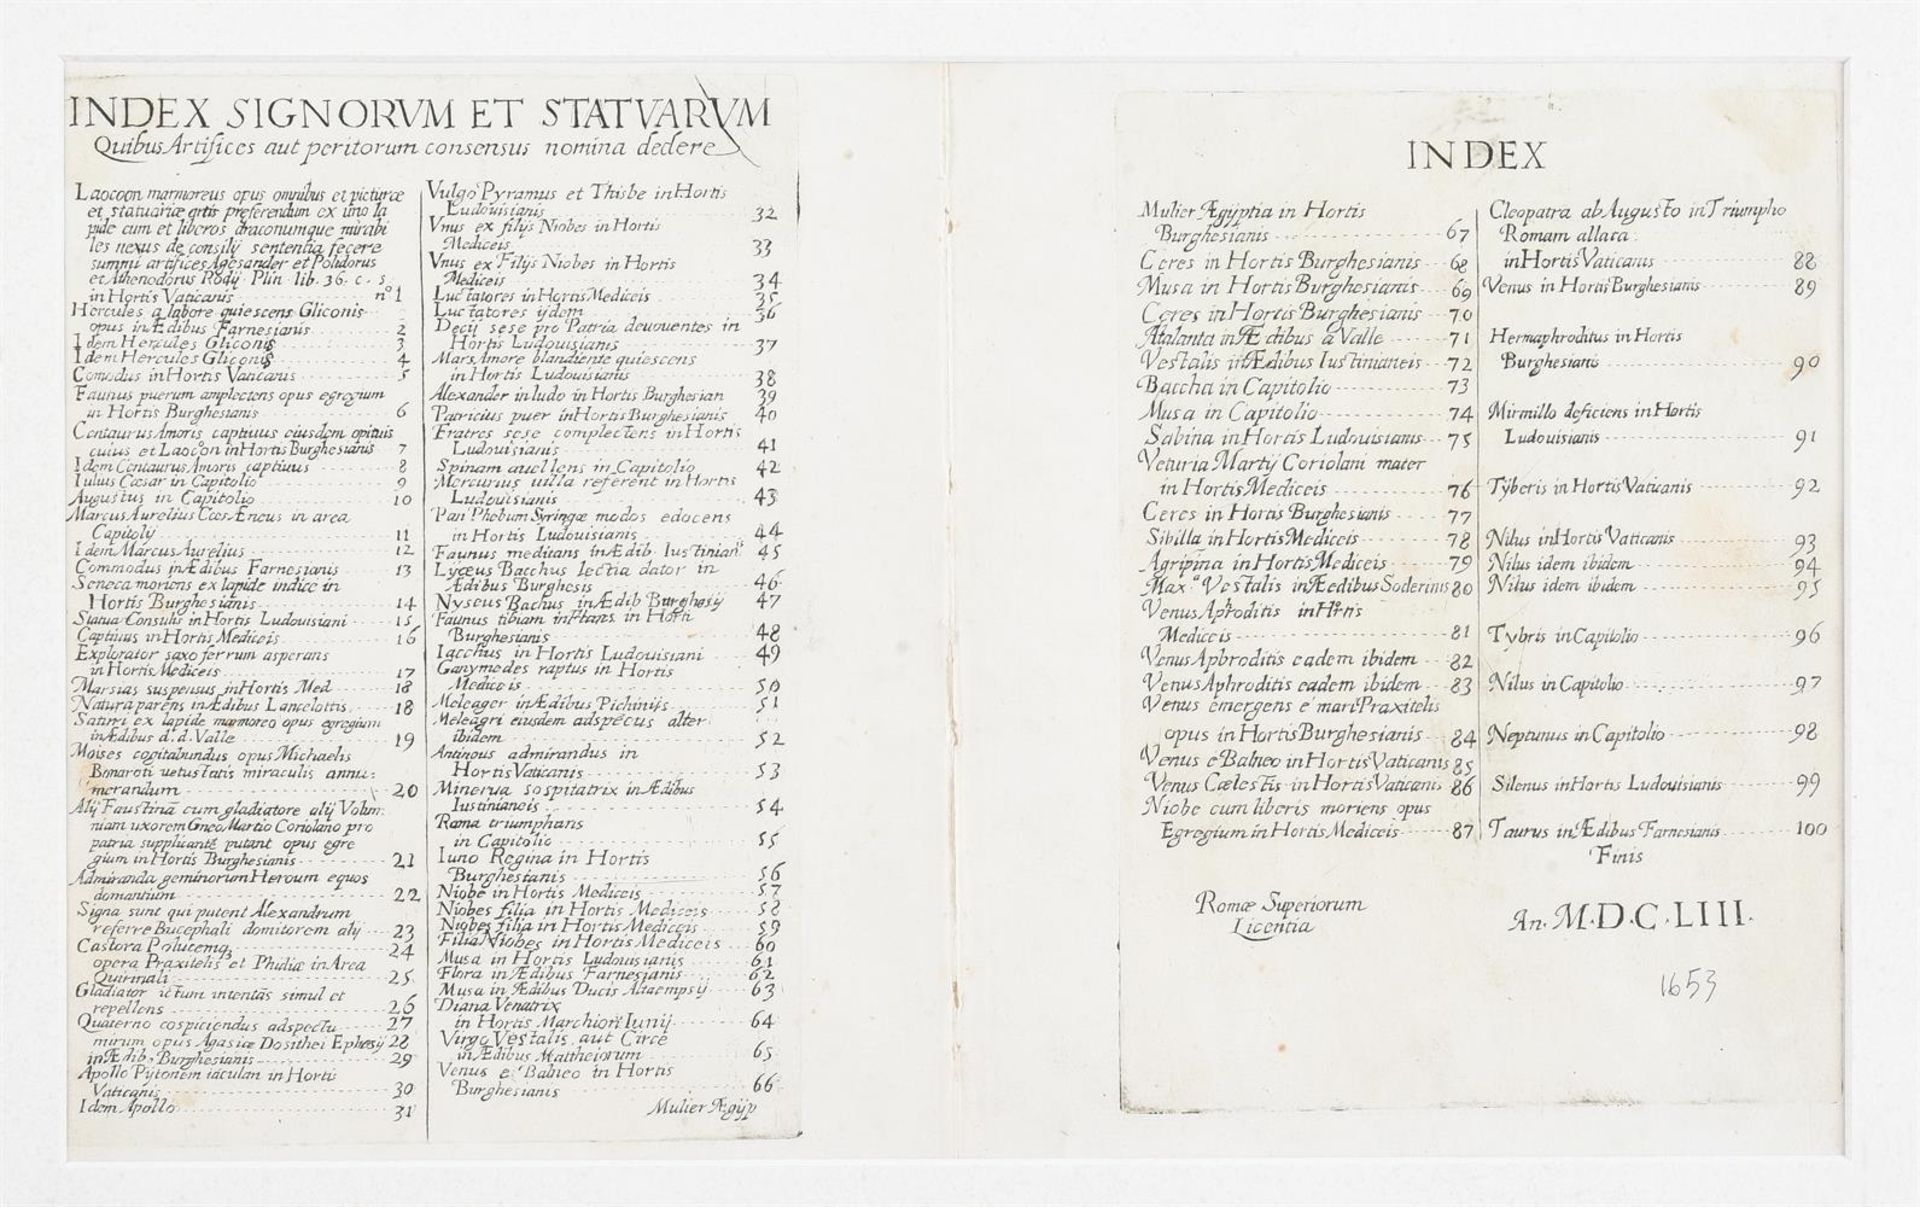 INDEX SIGNORVM ET STATVARVM
Quibus Artifices aut peritorum consensus nomina dedere
Laocoon marmoreus opus omnibus et picturæ
et statuariæ artis preferendum ex uno la
pide cum et liberos draconumque mirabi
les nexus de consilij sententia fecere
summi artifices Agesander et Polidorus
et Athenodorus Rodij Plin lib. 36. c. 5.
in Hortis Vaticanis nº 1
Hercules a labore quiescens Gliconis
opus in Ædibus Farnesianis 2
Idem Hercules Gliconis 3
Idem Hercules Gliconis 4
Comodus in Hortis Vaticanis 5
Faunus puerum amplectens opus egregium
in Hortis Burghesianis 6
Centaurus Amoris captiuus eiusdem opificis
cuius et Laocon in Hortis Burghesianis 7
Idem Centaurus Amoris captiuus 8
Iulius Cæsar in Capitolio 9
Augustus in Capitolio 10
Marcus Aurelius Cæs Æneus in area
Capitolij 11
Idem Marcus Aurelius 12
Commodus in Ædibus Farnesianis 13
Seneca moriens ex lapide indice in
Hortis Burghesianis 14
Statua Consulis in Hortis Ludouisiani 15
Captiuus in Hortis Mediceis 16
Explorator saxo ferrum asperans
in Hortis Mediceis 17
Marsias suspensus in Hortis Med 18
Natura parens in Ædibus Lancelottis 18
Satiri ex lapide marmoreo opus egregium
in Ædibus d. d. Valle 19
Moises cogitabundus opus Michaelis
Bonaroti uetustatis miraculis annu:
merandum 20
Alij Faustinã cum gladiatore alij Volum:
niam uxorem Gneo Martio Coriolano pro
patria supplicantẽ putant opus egre
gium in Hortis Burghesianis 21
Admiranda geminorum Heroum equos
domantium 22
Signa sunt qui putent Alexandrum
referre Bucephali domitorem alij 23
Castora Polucemq3 24
opera Praxitelis et Phidiæ in Area
Quirinali 25
Gladiator ictum intentãs simul et
repellens 26
Quaterno cospiciendus adspectu 27
mirum opus Agasiæ Dosithei Ephesij 28
in Ædib, Burghesianis 29
Apollo Pÿtonem iaculan in Hortis
Vaticanis 30
Idem Apollo 31
Vulgo Pyramus et Thisbe in Hortis
Ludouisianis 32
Vnus ex filijs Niobes in Hortis
Mediceis 33
Vnus ex Filijs Niobes in Hortis
Mediceis 34
Luctatores in Hortis Mediceis 35
Luctatores ijdem 36
Decij sese pro Patria deuouentes in
Hortis Ludouisianis 37
Mars Amore blandiente quiescens
in Hortis Ludouisianis 38
Alexander in ludo in Hortis Burghesian 39
Patricius puer in Hortis Burghesianis 40
Fratres sese complectens in Hortis
Ludouisianis 41
Spinam auellens in Capitolio 42
Mercurius uilla referent in Hortis
Ludouisianis 43
Pan Phebum Syringæ modos edocens
in Hortis Ludouisianis 44
Faunus meditans in Ædib. Iustinian 45
Lyceus Bacchus lectia dator in
Ædibus Burghesis 46
Nyseus Bachus in Ædib Burghesij 47
Faunus tibiam in Hortis
Burghesianis 48
Iacchus in Hortis Ludouisiani 49
Ganymedes raptus in Hortis
Mediceis 50
Meleager in Ædibus Pichinijs 51
Meleagri eiusdem adspecus alter
ibidem 52
Antinous admirandus in
Hortis Vaticanis 53
Minerua sospitatrix in Ædibus
Iustinianeis 54
Roma triumphans
in Capitolio 55
Iuno Regina in Hortis
Burghesianis 56
Niobe in Hortis Mediceis 57
Niobes filia in Hortis Mediceis 58
Niobes filia in Hortis Mediceis 59
Filia Niobes in Hortis Mediceis 60
Musa in Hortis Ludouisianis 61
Flora in Ædibus Farnesianis 62
Musa in Ædibus Ducis Altaempsij 63
Diana Venatrix
in Hortis Marchion Iunij 64
Virgo Vestalis aut Circe
in Ædibus Mattheiorum 65
Venus e Balneo in Hortis
Burghesianis 66
Mulier Ægÿp
INDEX
Mulier Ægÿptia in Hortis
Burghesianis 67
Ceres in Hortis Burghesianis 68
Musa in Hortis Burghesianis 69
Ceres in Hortis Burghesianis 70
Atalanta in Ædibus a Valle 71
Vestalis in Ædibus Iustinianeis 72
Baccha in Capitolio 73
Musa in Capitolio 74
Sabina in Hortis Ludouisianis 75
Veturia Martij Coriolani mater
in Hortis Mediceis 76
Ceres in Hortis Burghesianis 77
Sibilla in Hortis Mediceis 78
Agripina in Hortis Mediceis 79
Max.ª Vestalis in Ædibus Soderinis 80
Venus Aphroditis in Hortis
Mediceis 81
Venus Aphroditis eadem ibidem 82
Venus Aphroditis eadem ibidem 83
Venus emergens e mari Praxitelis
opus in Hortis Burghesianis 84
Venus e Balneo in Hortis Vaticanis 85
Venus Cælestis in Hortis Vaticanis 86
Niobe cum liberis moriens opus
Egregium in Hortis Mediceis 87
Cleopatra ab Augusto in Triumpho
Romam allata
in Hortis Vaticanis 88
Venus in Hortis Burghesianis 89
Hermaphroditus in Hortis
Burghesianis 90
Mirmillo deficiens in Hortis
Ludouisianis 91
Tÿberis in Hortis Vaticanis 92
Nilus in Hortis Vaticanis 93
Nilus idem ibidem 94
Nilus idem ibidem 95
Tybris in Capitolio 96
Nilus in Capitolio 97
Neptunus in Capitolio 98
Silenus in Hortis Ludouisianis 99
Taurus in Ædibus Farnesianis 100
Finis
Romæ Superiorum
Licentia
An. M.D.C.LIII.
1653